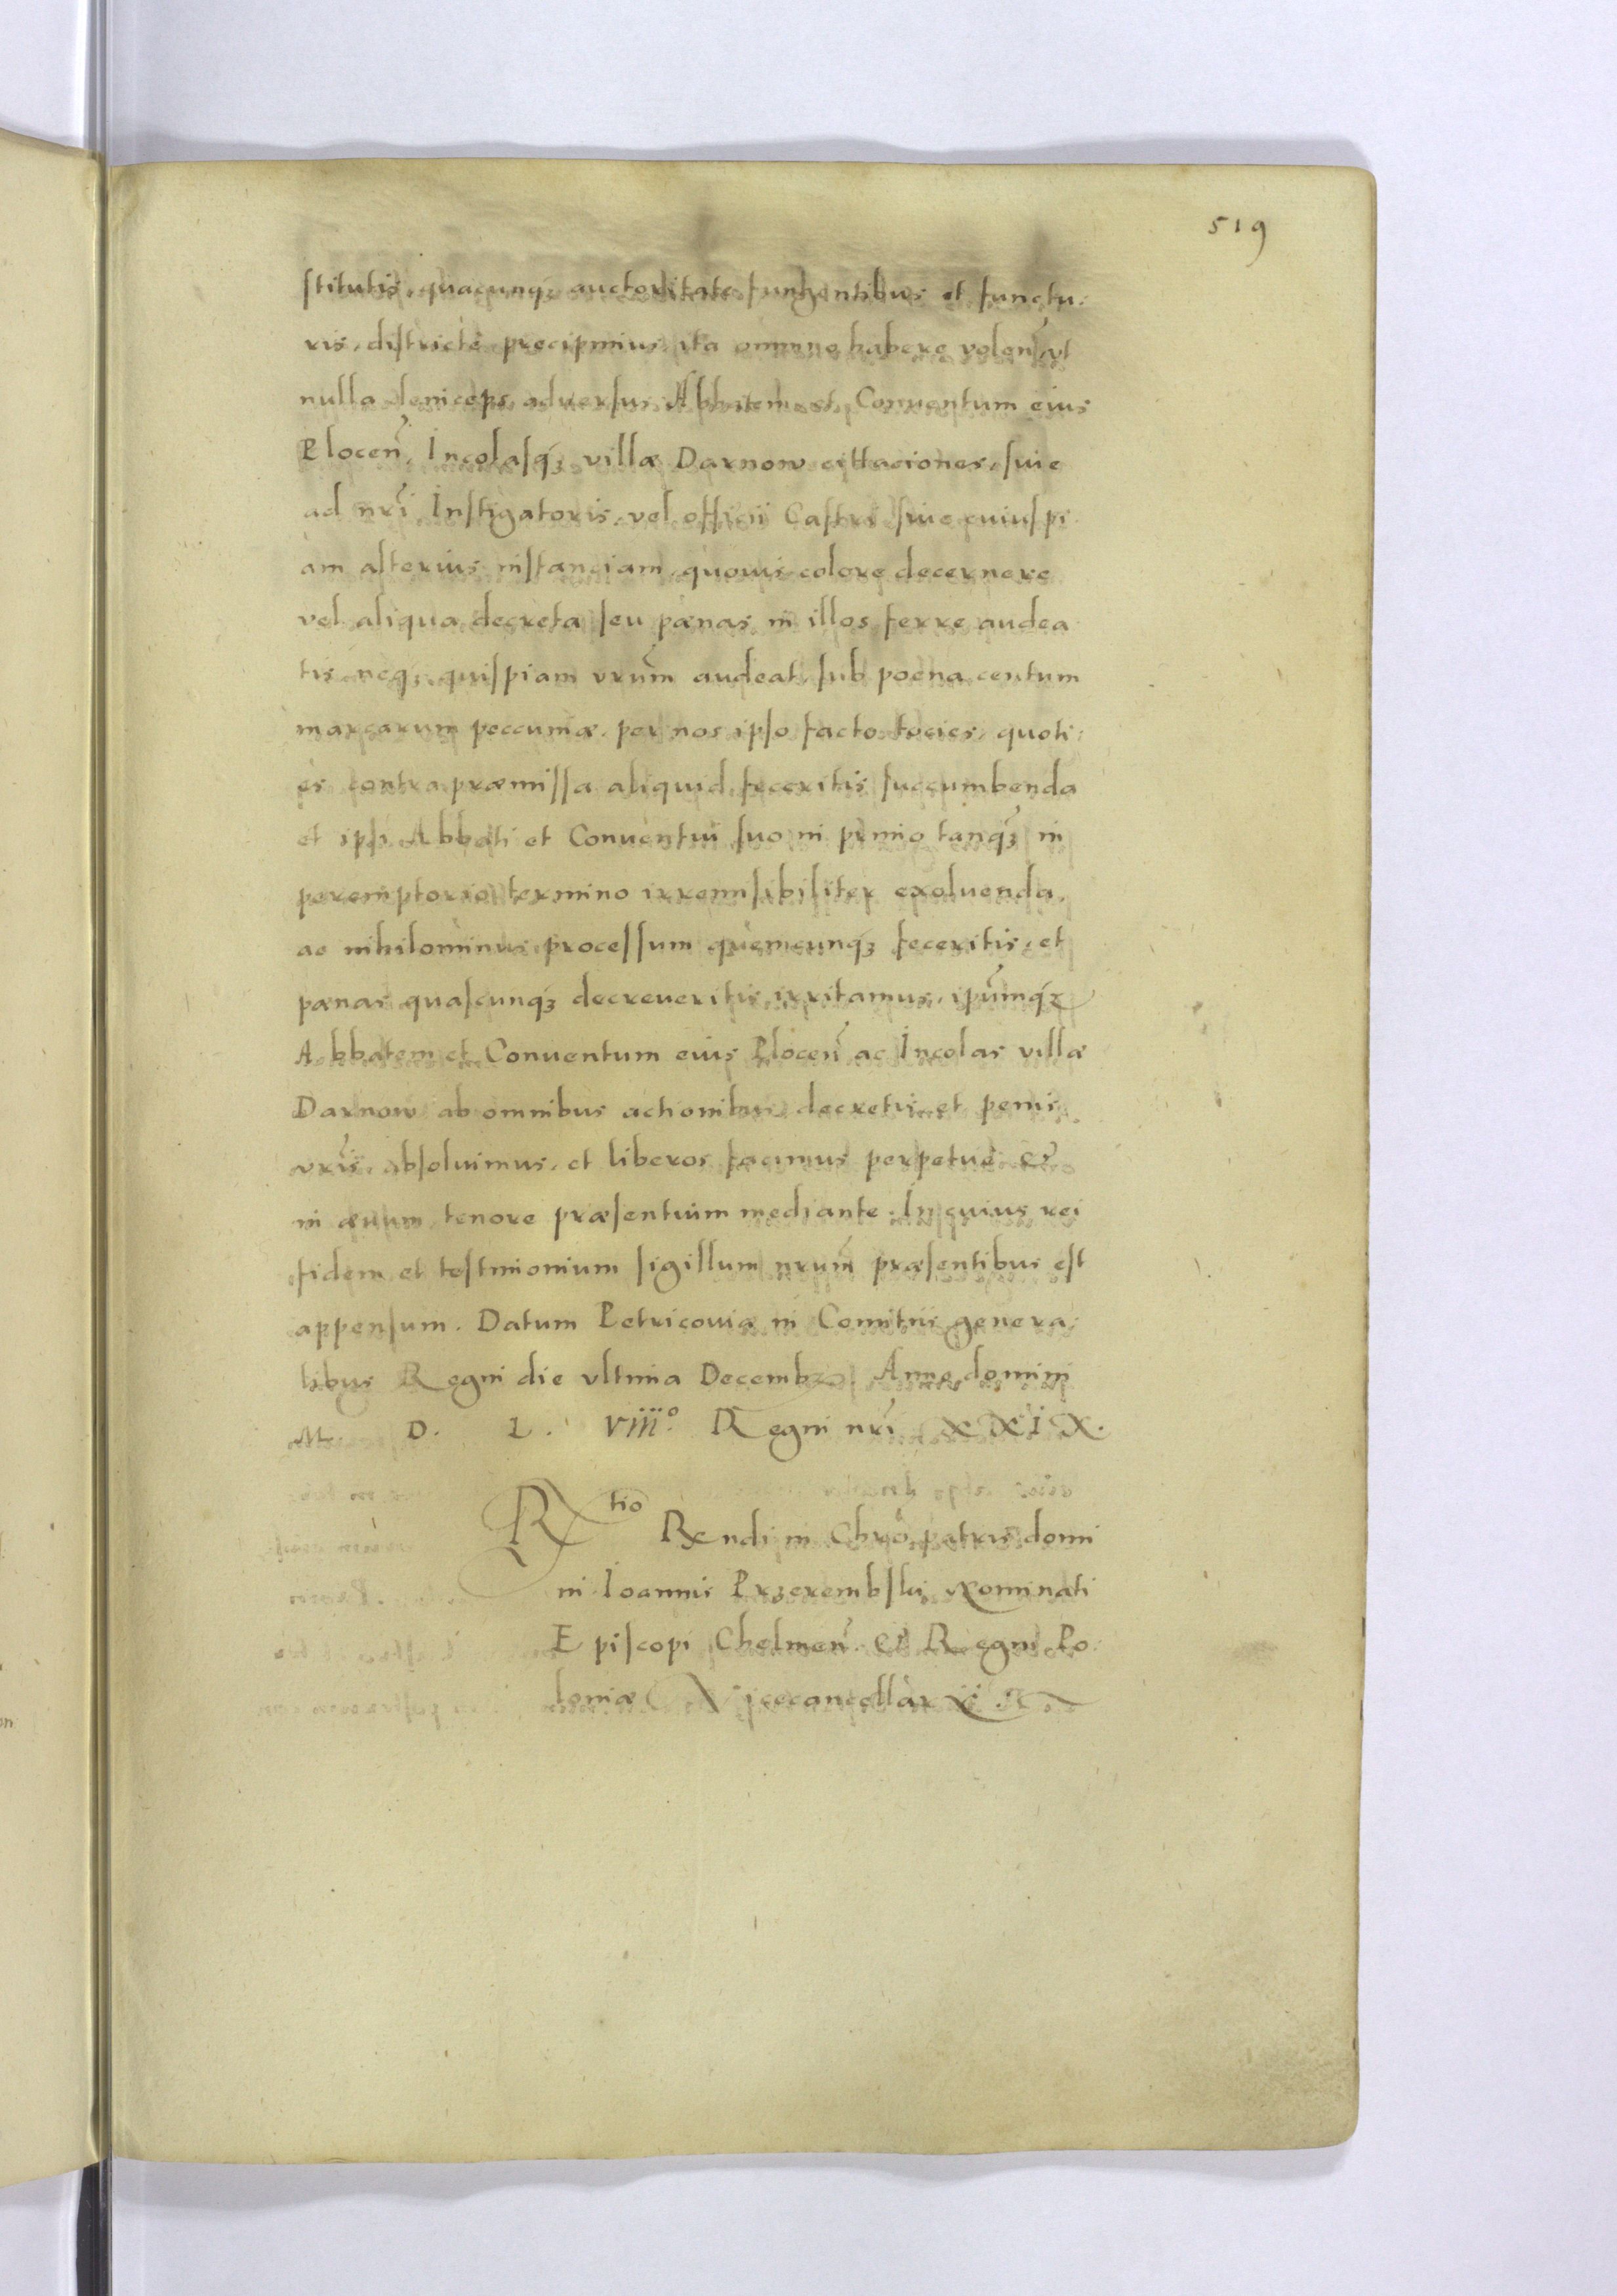 519
stitutis, quacunq; auctoritate fungentibus et functu:
ris, districtè precipimus, ita omnino habere volen̄, vt
nulla deinceps aduersus Abbatem et Conuentum eius
Plocen̄, Incolasq; villæ Darnow cittaciones, siue
ad nrī Instigatoris, vel officii Castri siue cuiuspi
am alterius instanciam, quouis colore decernere
vel aliqua decreta seu pænas in illos ferre audea
tis neq; quispiam vrum̄ audeat, sub poena centum
marcarum peccuniæ, per nos ipso facto tocies, quoti:
es contra præmissa aliquid feceritis succumbenda
et ipsi Abbati et Conuentui suo in primo tanq̃; in
peremptorio termino irremisibiliter exoluenda,
ac nihilominus processum quemcunq; feceritis, et
pænas quascunq; decreueritis irritamus, ipum̄q;
Abbatem et Conuentum eius Plocen̄ ac Incolas villæ
Darnow ab omnibus actionibus decretis et penis
vrīs, absoluimus, et liberos facimus perpetuè &
in æuum tenore præsentium mediante. In cuius rei
fidem et testimonium sigillum nrum̄ præsentibus est
appensum. Datum Petricouiæ in Comitiis genera:
libus Regni die vltima Decemb. Anno domini
M. D. L. VIIIº. Regni nrī XXIX.
Rtio Rendi in Chro patris domi
ni Ioannis Przerembski Nominati
Episcopi Chelmen̄. & Regni Po:
loniæ Vicecancellarii